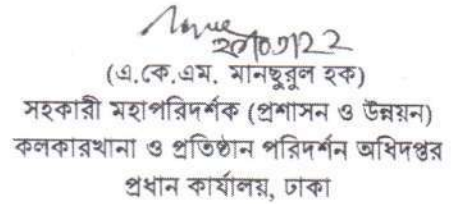 ২০/০৭/২২
(এ.কে.এম. মানছুরুল হক)
সহকারী মহাপরিদর্শক (প্রশাসন ও উন্নয়ন)
কলকারখানা ও প্রতিষ্ঠান পরিদর্শন অধিদপ্তর
প্রধান কার্যালয়, ঢাকা